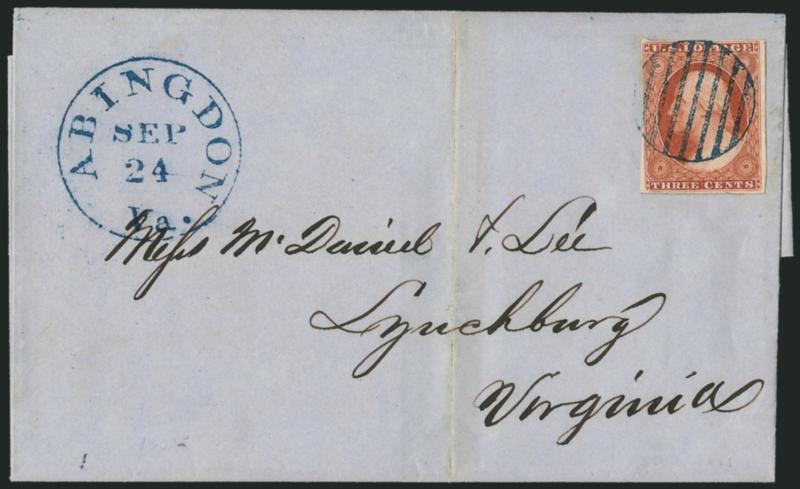 ABINGDON
SEP
24
Va.
U.S. POSTAGE
THREE CENTS
Mess McDaniel & Lee
Lynchburg
Virginia